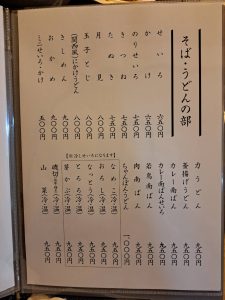 そば・うどんの部
せいろ 六五〇円
かけ 六五〇円
のりせいろ 七五〇円
きつね 七五〇円
たぬき 七五〇円
月見 七五〇円
玉子とじ
【関西風】にかけうどん
きしめん
おかめ
ミニせいろ・かけ 五〇〇円
力うどん 九五〇円
釜揚げうどん 九五〇円
カレー南ばん 九五〇円
カレー南ばんせいろ 九五〇円
若鳥南ばん 九五〇円
肉南ばん 九五〇円
ちゃんぽんうどん 一、〇〇〇円
冷しせいろになります
なめこ(冷・温) 九五〇円
おろし(冷・温) 九五〇円
なっとう(冷・温) 九五〇円
とろろ(冷・温) 九五〇円
芽かぶ(冷・温) 九五〇円
(冷・温) 九五〇円
山菜(冷・温) 九五〇円